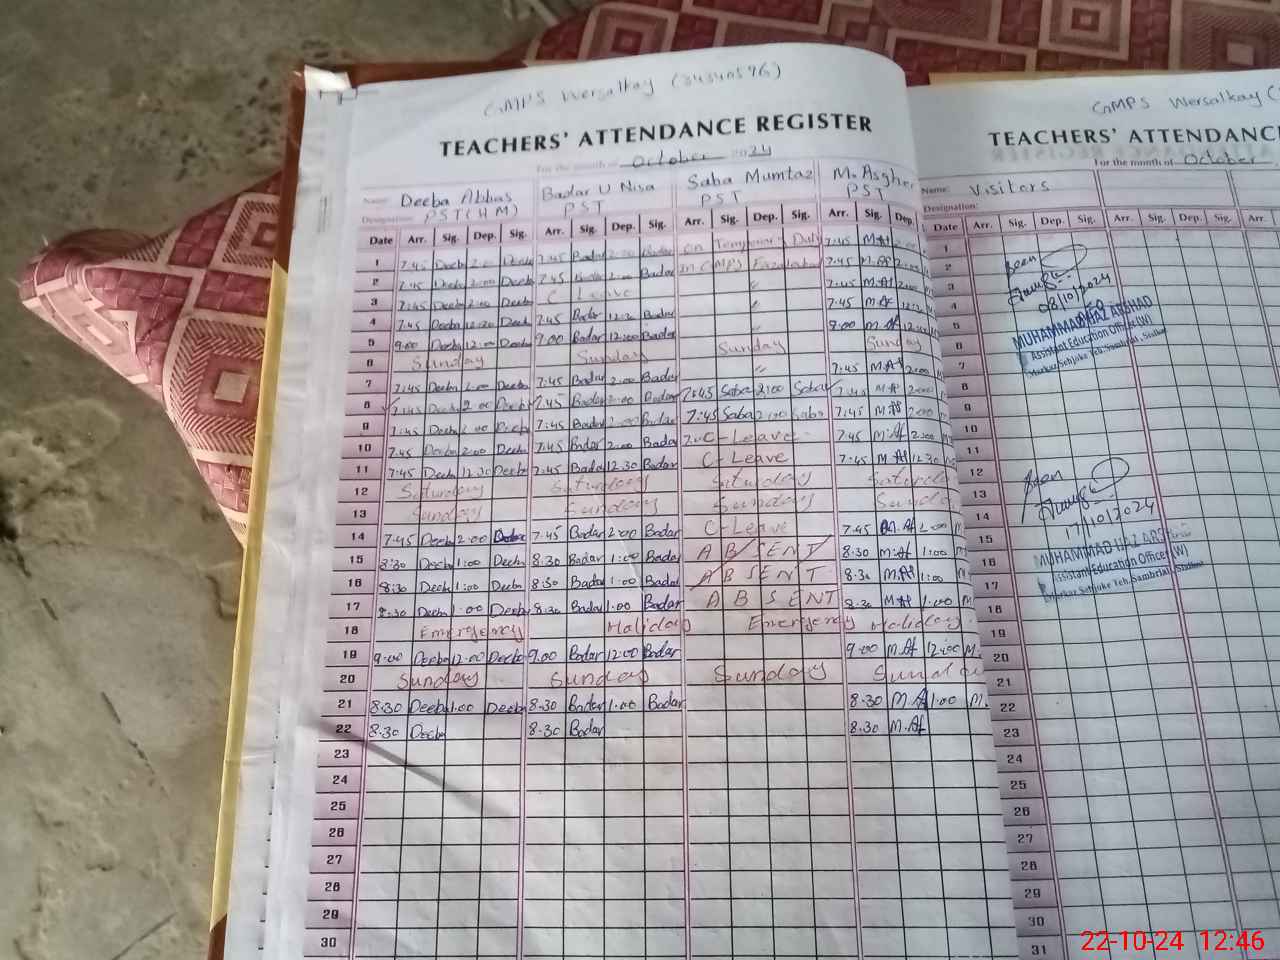 GMPS Wersalkay (34340596)
TEACHERS' ATTENDANCE REGISTER
For the month of October 2024
Name: Deeba Abbas Badar U Nisa Saba Mumtaz M. Asgher
Designation: PST (HM) PST PST PST
Date Arr. Sig. Dep. Sig. Arr. Sig. Dep. Sig. Arr. Sig. Dep. Sig. Arr. Sig. Dep.
1 7:45 Deeba 2:00 Deeba 7:45 Badar 2:00 Badar on Temporary Duty 7:45 M.Af 2:00
2 7:45 Deeba 2:00 Deeba 7:45 Badar 2:00 Badar in GMPS 7:45 M.Af 2:00
3 7:45 Deeba 2:00 Deeba C Leave " 7:45 M.Af 2:00
4 7:45 Deeba 12:30 Deeba 7:45 Badar 12:30 Badar " 7:45 M.Af 12:30
5 9:00 Deeba 12:00 Deeba 9:00 Badar 12:00 Badar " 9:00 M.Af 12:00
6 Sunday Sunday Sunday Sunday
7 7:45 Deeba 2:00 Deeba 7:45 Badar 2:00 Badar " 7:45 M.Af 2:00
8 7:45 Deeba 2:00 Deeba 7:45 Badar 2:00 Badar 7:45 Saba 2:00 Saba 7:45 M.Af 2:00
9 7:45 Deeba 2:00 Deeba 7:45 Badar 2:00 Badar 7:45 Saba 2:00 Saba 7:45 M.Af 2:00
10 7:45 Deeba 2:00 Deeba 7:45 Badar 2:00 Badar C-Leave 7:45 M.Af 2:00
11 7:45 Deeba 12:30 Deeba 7:45 Badar 12:30 Badar C-Leave 7:45 M.Af 12:30
12 Saturday Saturday Saturday Saturday
13 Sunday Sunday Sunday Sunday
14 7:45 Deeba 2:00 Deeba 7:45 Badar 2:00 Badar C-Leave 7:45 M.Af 2:00
15 8:30 Deeba 1:00 Deeba 8:30 Badar 1:00 Badar ABSENT 8:30 M.Af 1:00
16 8:30 Deeba 1:00 Deeba 8:30 Badar 1:00 Badar ABSENT 8:30 M.Af 1:00
17 8:30 Deeba 1:00 Deeba 8:30 Badar 1:00 Badar ABSENT 8:30 M.Af 1:00
18 Emergency Holiday Emergency Holiday
19 9:00 Deeba 12:00 Deeba 9:00 Badar 12:00 Badar 9:00 M.Af 12:00 M.
20 Sunday Sunday Sunday Sunday
21 8:30 Deeba 1:00 Deeba 8:30 Badar 1:00 Badar 8:30 M.Af 1:00 M.
22 8:30 Deeba 8:30 Badar 8:30 M.Af
23
24
25
26
27
28
29
30
GMPS Wersalkay (
TEACHERS' ATTENDANC
For the month of October
Name: Visitors
Designation:
Date Arr. Sig. Dep. Sig. Arr. Sig. Dep. Sig. Arr.
1
2 Seen
3
4 08/10/2024
5 MUHAMMAD IJAZ ARSHAD
6 Assistant Education Officer (W)
7 Markaz Sahjoke Teh. Sambrial, Sialkot
8
9
10
11
12
13 Seen
14
15 17/10/2024
16 MUHAMMAD IJAZ ARSHAD
17 Assistant Education Officer (W)
18 Markaz Sahjoke Teh. Sambrial, Sialkot
19
20
21
22
23
24
25
26
27
28
29
30
31
22-10-24 12:46